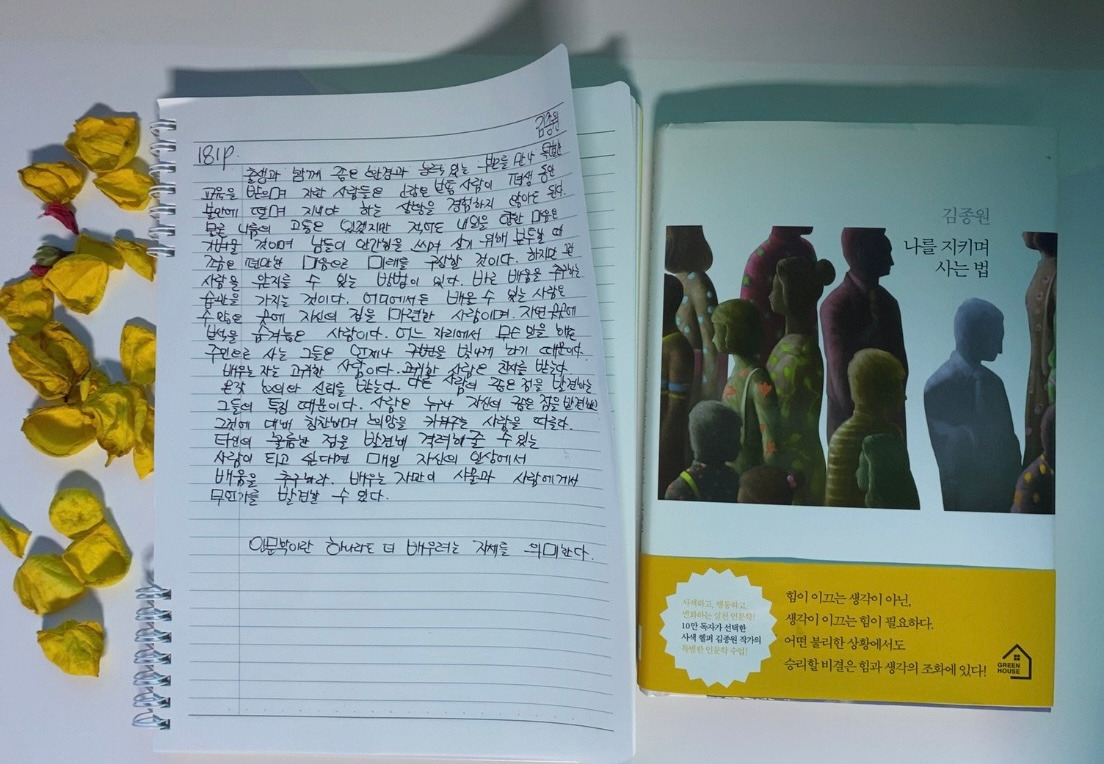 김종원
181p.
출생과 함께 좋은 환경과 능력 있는 부모를 만나 특별한
교육을 받으며 자란 사람들은 보통 사람이 평생 동안
불안에 떨며 지내야 하는 상황을 경험하지 않아도 된다.
물론 나름의 고통은 있겠지만 적어도 내일을 향한 마음은
가벼울 것이며 남들이 안간힘을 쓰며 살기 위해 분투할 때
조금은 편안한 마음으로 미래를 구상할 것이다. 하지만 본
사람을 완치를 수 있는 방법이 있다. 바로 배움을 추구하는
습관을 가지는 것이다. 어디에서든 배울 수 있는 사람은
수많은 곳에 자신의 집을 마련한 사람이며, 자연 곳곳에
보석을 숨겨놓은 사람이다. 어느 자리에서 무슨 일을 해도
주인으로 사는 그들은 언제나 주변을 빛나게 하기 때문이다.
배우는 자는 고귀한 사람이다. 고귀한 사람은 찬사를 받는다.
온갖 호의와 신뢰를 받는다. 다른 사람의 좋은 점을 발견하는
그들의 특징 때문이다. 사람은 누구나 자신의 좋은 점을 발견하고
그것에 대해 칭찬하며 희망을 키워주는 사람을 따른다.
타인의 훌륭한 점을 발견해 격려해줄 수 있는
사람이 되고 싶다면 매일 자신의 일상에서
배움을 추구하라. 배우는 자만이 사물과 사람에게서
무언가를 발견할 수 있다.
인문학이란 하나라도 더 배우려는 자세를 의미한다.
김종원
나를 지키며
사는 법
사색하고, 행동하고,
변화하는 실천 인문학!
10만 독자가 선택한
사색 헬퍼 김종원 작가의
특별한 인문학 수업!
힘이 이끄는 생각이 아닌,
생각이 이끄는 힘이 필요하다.
어떤 불리한 상황에서도
승리할 비결은 힘과 생각의 조화에 있다!
GREEN
HOUSE